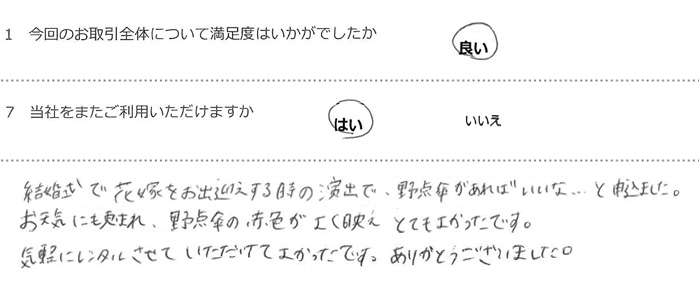 1 今回のお取引全体について満足度はいかがでしたか 良い
7 当社をまたご利用いただけますか はい いいえ
結婚式で花嫁をお出迎えする時の演出で、野点傘があればいいな…と申込ました。
お天気にも恵まれ、野点傘の赤色がよく映えとてもよかったです。
気軽にレンタルさせていただけてよかったです。ありがとうございました。